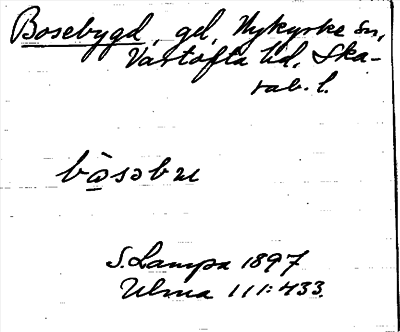 Bosebygd, gd, Nykyrke sn,
Vartofta hd, Ska-
rab. l.
S. Lampa 1897
Ulma 111:433.